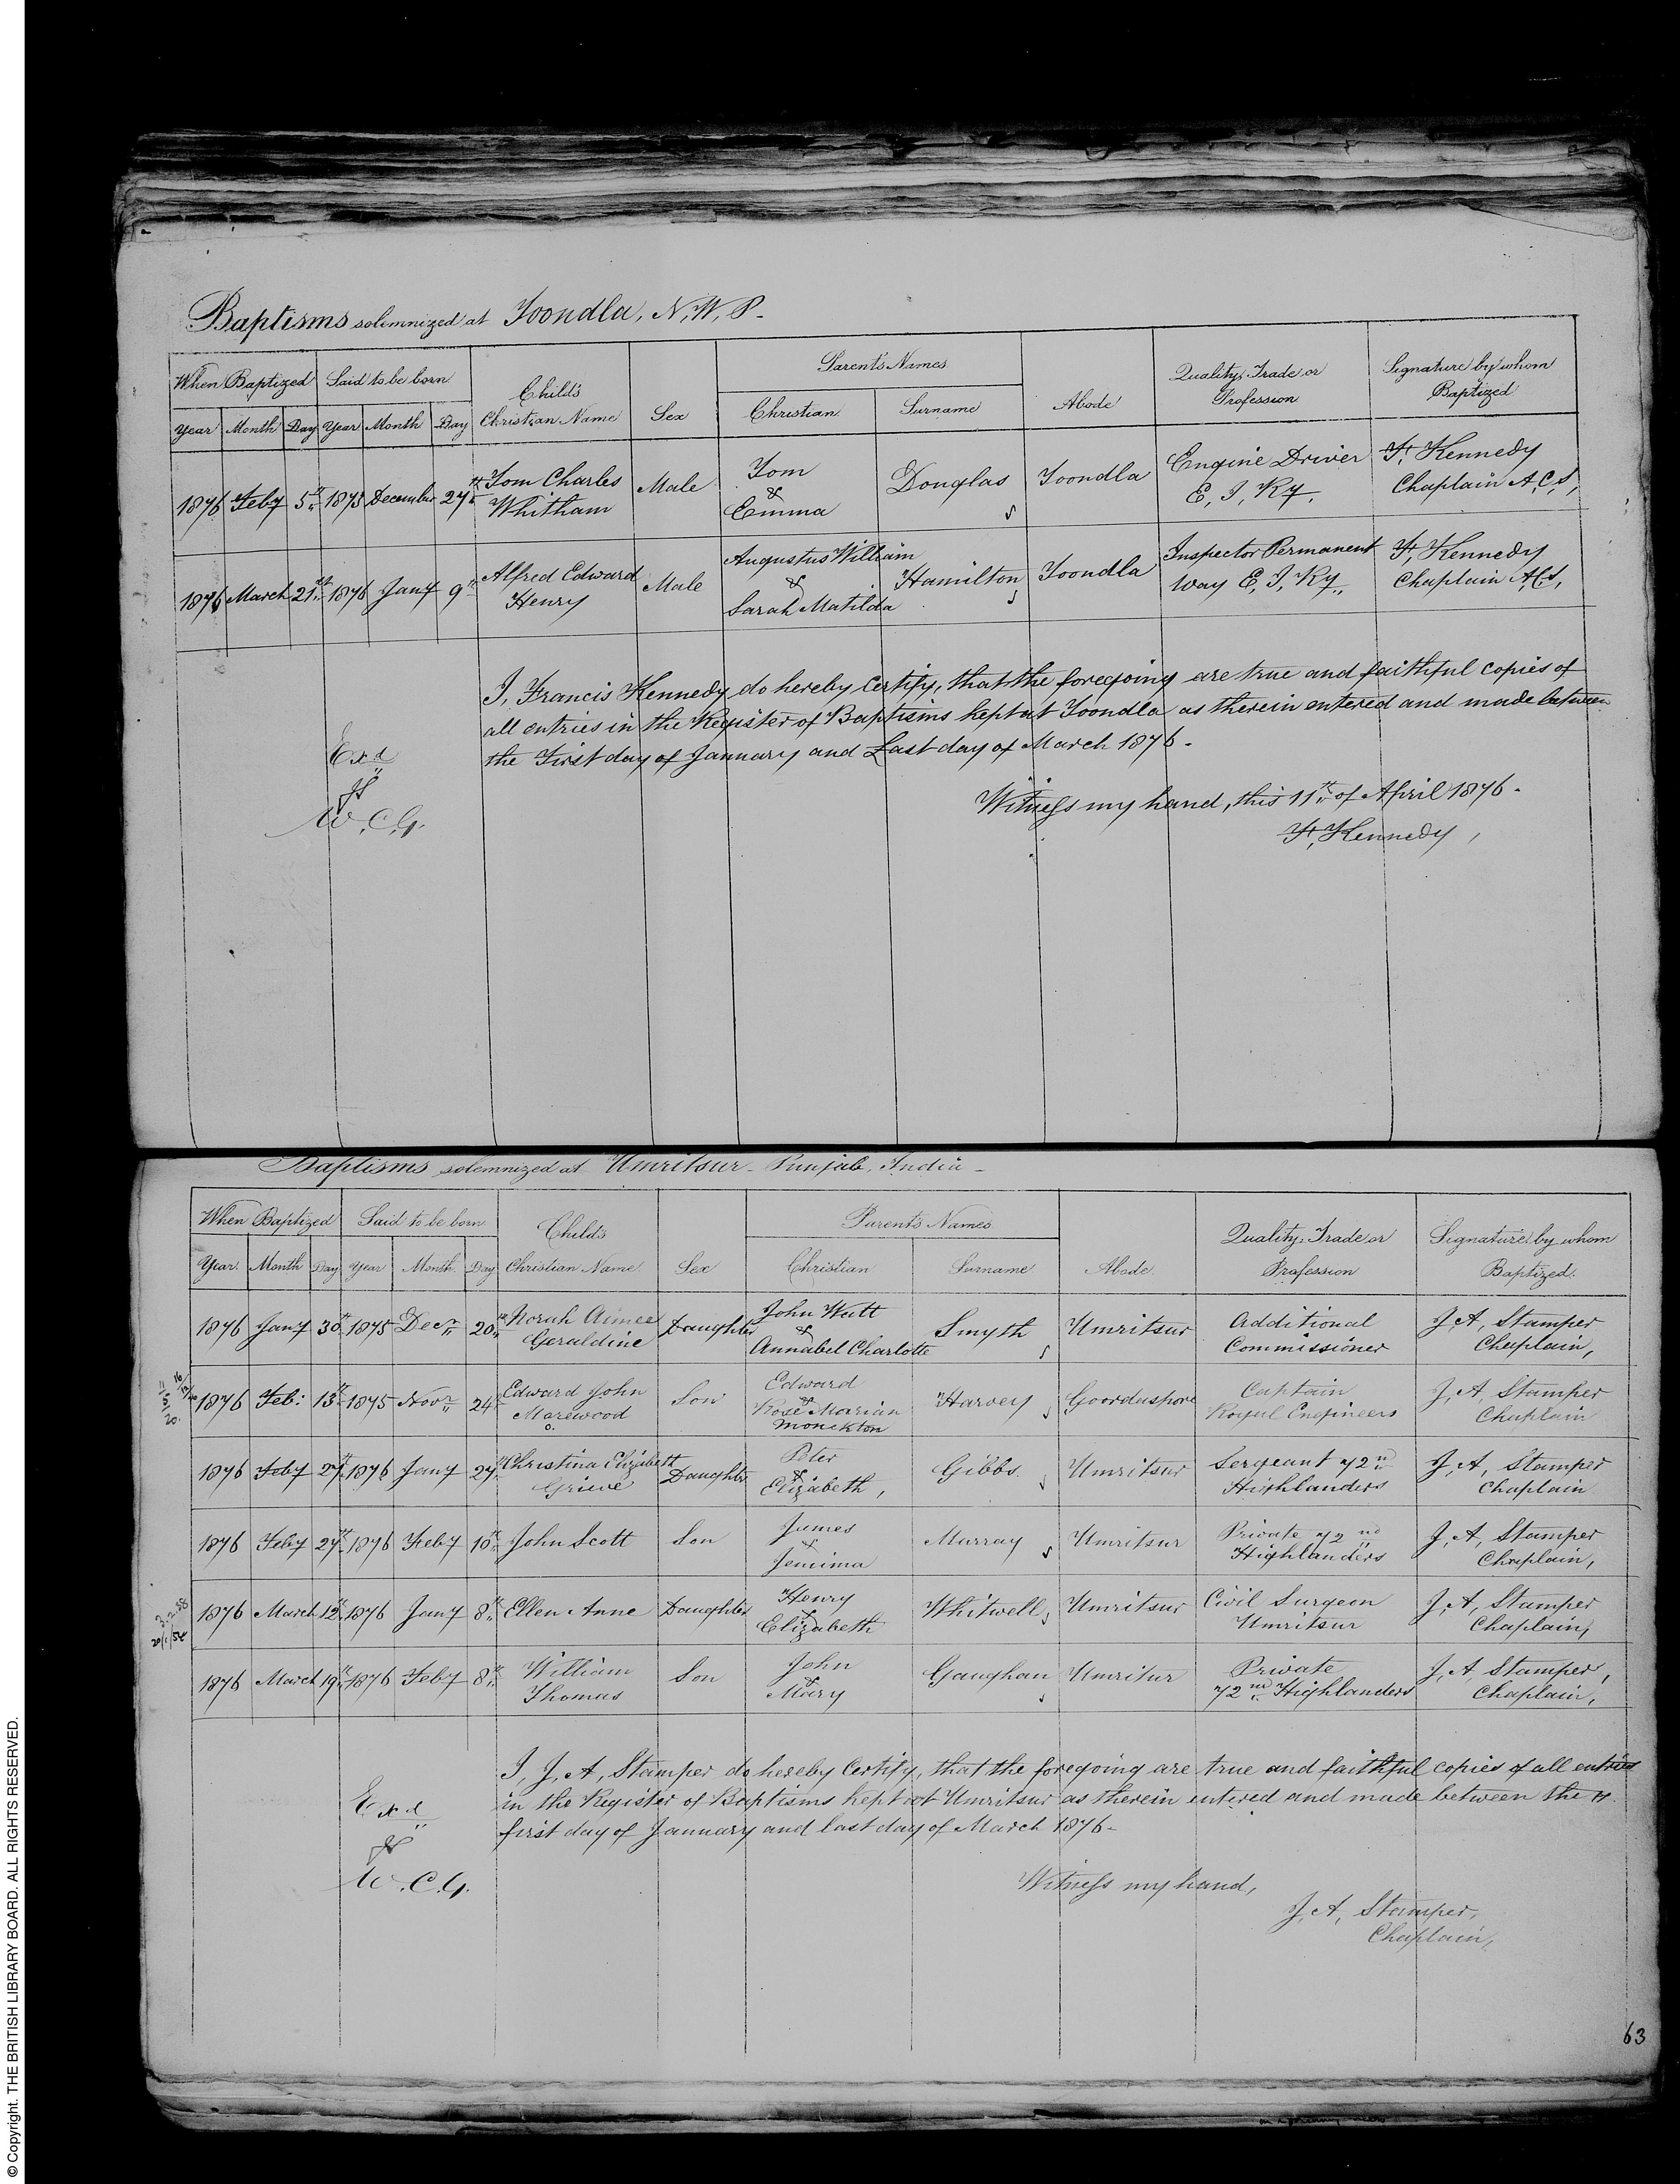 Baptisms solemnized at Toondla, N. W. P.
When Baptized Said to be born Child's Christian Name Sex Parent's Names Abode Quality, Trade or Profession Signature by whom Baptized
Year Month Day Year Month Day Christian Surname
1876 Feby 5th 1875 December 27th Tom Charles Whitham Male Tom & Emma Douglas Toondla Engine Driver E. I. Ry. F. Kennedy Chaplain A.C.S.
1876 March 21st 1876 Jany 9th Alfred Edward Henry Male Augustus William & Sarah Matilda Hamilton Toondla Inspector Permanent Way E. I. Ry. F. Kennedy Chaplain A.C.S.
I, Francis Kennedy do hereby certify, that the foregoing are true and faithful copies of
all entries in the Register of Baptisms kept at Toondla as therein entered and made between
the First day of January and Last day of March 1876.
Exd
W. C. G.
Witness my hand, this 11th of April 1876.
F. Kennedy,
Baptisms solemnized at Umritsur. Punjab. India
When Baptized Said to be born Child's Christian Name Sex Parent's Names Abode Quality, Trade or Profession Signature by whom Baptized
Year Month Day Year Month Day Christian Surname
1876 Jany 30th 1875 Decr 20th Norah Aimee Geraldine Daughter John Watt & Annabel Charlotte Smyth Umritsur Additional Commissioner J. A. Stamper Chaplain,
1876 Feb: 13th 1875 Novr 24th Edward John Morewood Son Edward & Rose Marian Monckton Harvey Goordaspore Captain Royal Engineers J. A. Stamper Chaplain
1876 Feby 27th 1876 Jany 27th Christina Elizabeth Grieve Daughter Peter & Elizabeth, Gibbs. Umritsur Sergeant 72nd Highlanders J. A. Stamper Chaplain
1876 Feby 27th 1876 Feby 10th John Scott Son James & Jemima Murray Umritsur Private 72nd Highlanders J. A. Stamper Chaplain,
1876 March 12th 1876 Jany 8th Ellen Anne Daughter Henry & Elizabeth Whitwell Umritsur Civil Surgeon Umritsur J. A. Stamper Chaplain,
1876 March 19th 1876 Feby 8th William Thomas Son John & Mary Gaughan Umritur Private 72nd Highlanders J. A. Stamper, Chaplain,
I, J. A. Stamper do hereby certify, that the foregoing are true and faithful copies of all entries
in the Register of Baptisms kept at Umritsur as therein entered and made between the
first day of January and last day of March 1876.
Exd
W. C. G.
Witness my hand,
J. A. Stamper,
Chaplain,
63
© Copyright. THE BRITISH LIBRARY BOARD. ALL RIGHTS RESERVED.